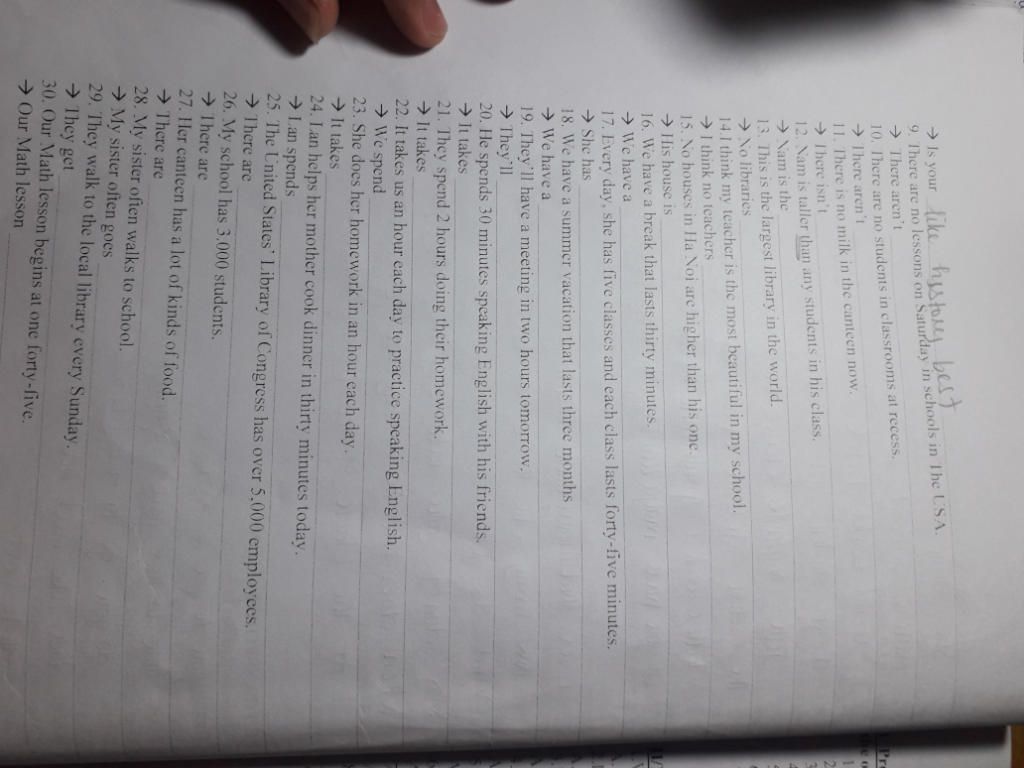 → Is your like history best
9. There are no lessons on Saturday in schools in The USA.
→ There aren't
10. There are no students in classrooms at recess.
→ There aren't
11. There is no milk in the canteen now.
→ There isn't
12. Nam is taller than any students in his class.
→ Nam is the
13. This is the largest library in the world.
→ No libraries
14.I think my teacher is the most beautiful in my school.
→ I think no teachers
15. No houses in Ha Noi are higher than his one.
→ His house is
16. We have a break that lasts thirty minutes.
→ We have a
17. Every day, she has five classes and each class lasts forty-five minutes.
→ She has
18. We have a summer vacation that lasts three months
→ We have a
19. They'll have a meeting in two hours tomorrow.
→ They'll
20. He spends 30 minutes speaking English with his friends.
→ It takes
21. They spend 2 hours doing their homework.
→ It takes
22. It takes us an hour each day to practice speaking English.
→ We spend
23. She does her homework in an hour each day.
→ It takes
24. Lan helps her mother cook dinner in thirty minutes today.
→ Lan spends
25. The United States' Library of Congress has over 5,000 employees.
→ There are
26. My school has 3,000 students.
→ There are
27. Her canteen has a lot of kinds of food.
→ There are
28. My sister often walks to school.
→ My sister often goes
29. They walk to the local library every Sunday.
→ They get
30. Our Math lesson begins at one forty-five.
→ Our Math lesson